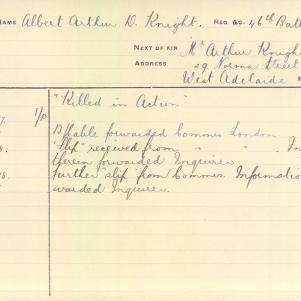 NAME Albert Arthur D. Knight. REG. &C. 46th Batt
NEXT OF KIN Mr Arthur Knigh
ADDRESS 29 Norma Street
West Adelaide
7. 1/P "Killed in Action"
Cable forwarded Commrs London
8. "slip" received from " " . In
therein forwarded Inquirer
8. Further "slip" from Commrs. Informatio
warded Inquirer.